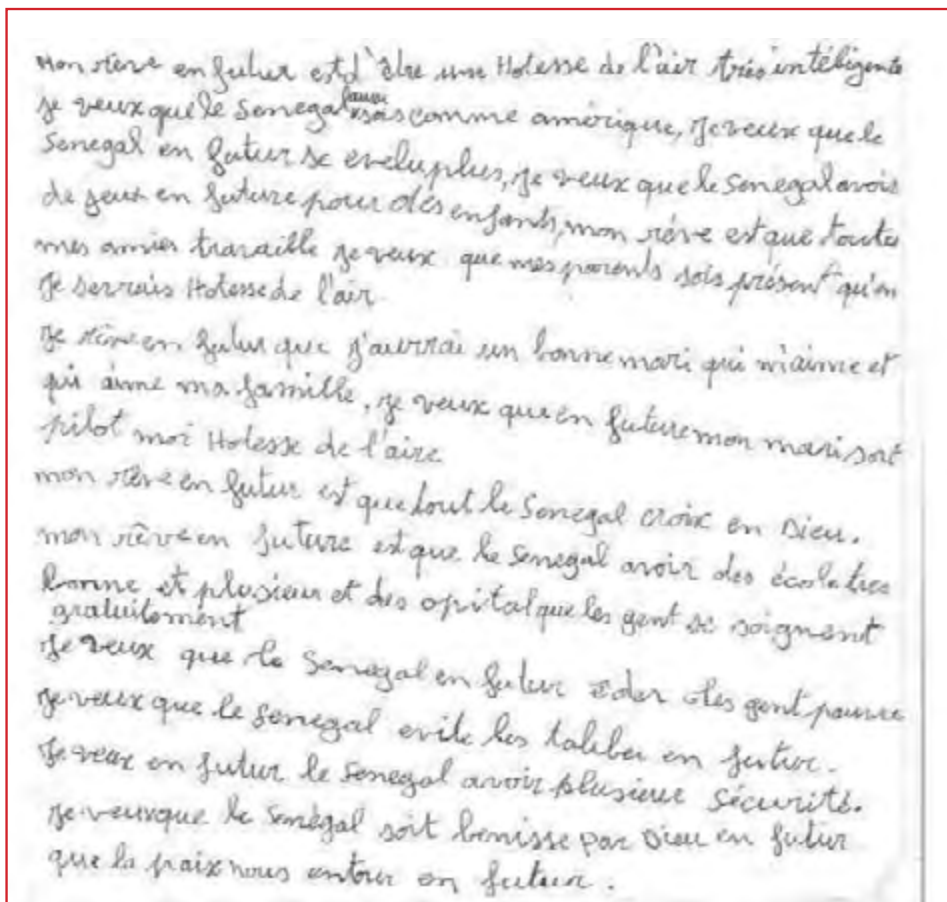 Mon rêve en futur est d'être une Hotesse de l'air très intébigente
je veux que le Senegal sois comme amérique, je veux que le
Senegal en futur se evelu plus, je veux que le Senegal avois
de jeux en future pour des enfants, mon rêve est que toutes
mes amies travaille je veux que mes parents sois présent qu'en
Je serrais Hotesse de l'air
Je rêve en futur que j'aurrai un bonne mari qui m'aime et
qui aime ma famille, je veux que en future mon mari soit
pilot moi Hotesse de l'aire
mon rêve en futur est que tout le Senegal croix en Dieu.
mon rêve en future est que le Senegal avoir des écola tres
bonne et plusieur et des opital que les gent se soignent
gratuitement
Je veux que le Senegal en futur eder les gent pauvre
je veux que le Senegal evite les talibu en futur.
Je veux en futur le Senegal avoir plusieur sécurité.
je veux que le Senégal soit benisse par Dieu en futur
que la paix nous entrer en futur.